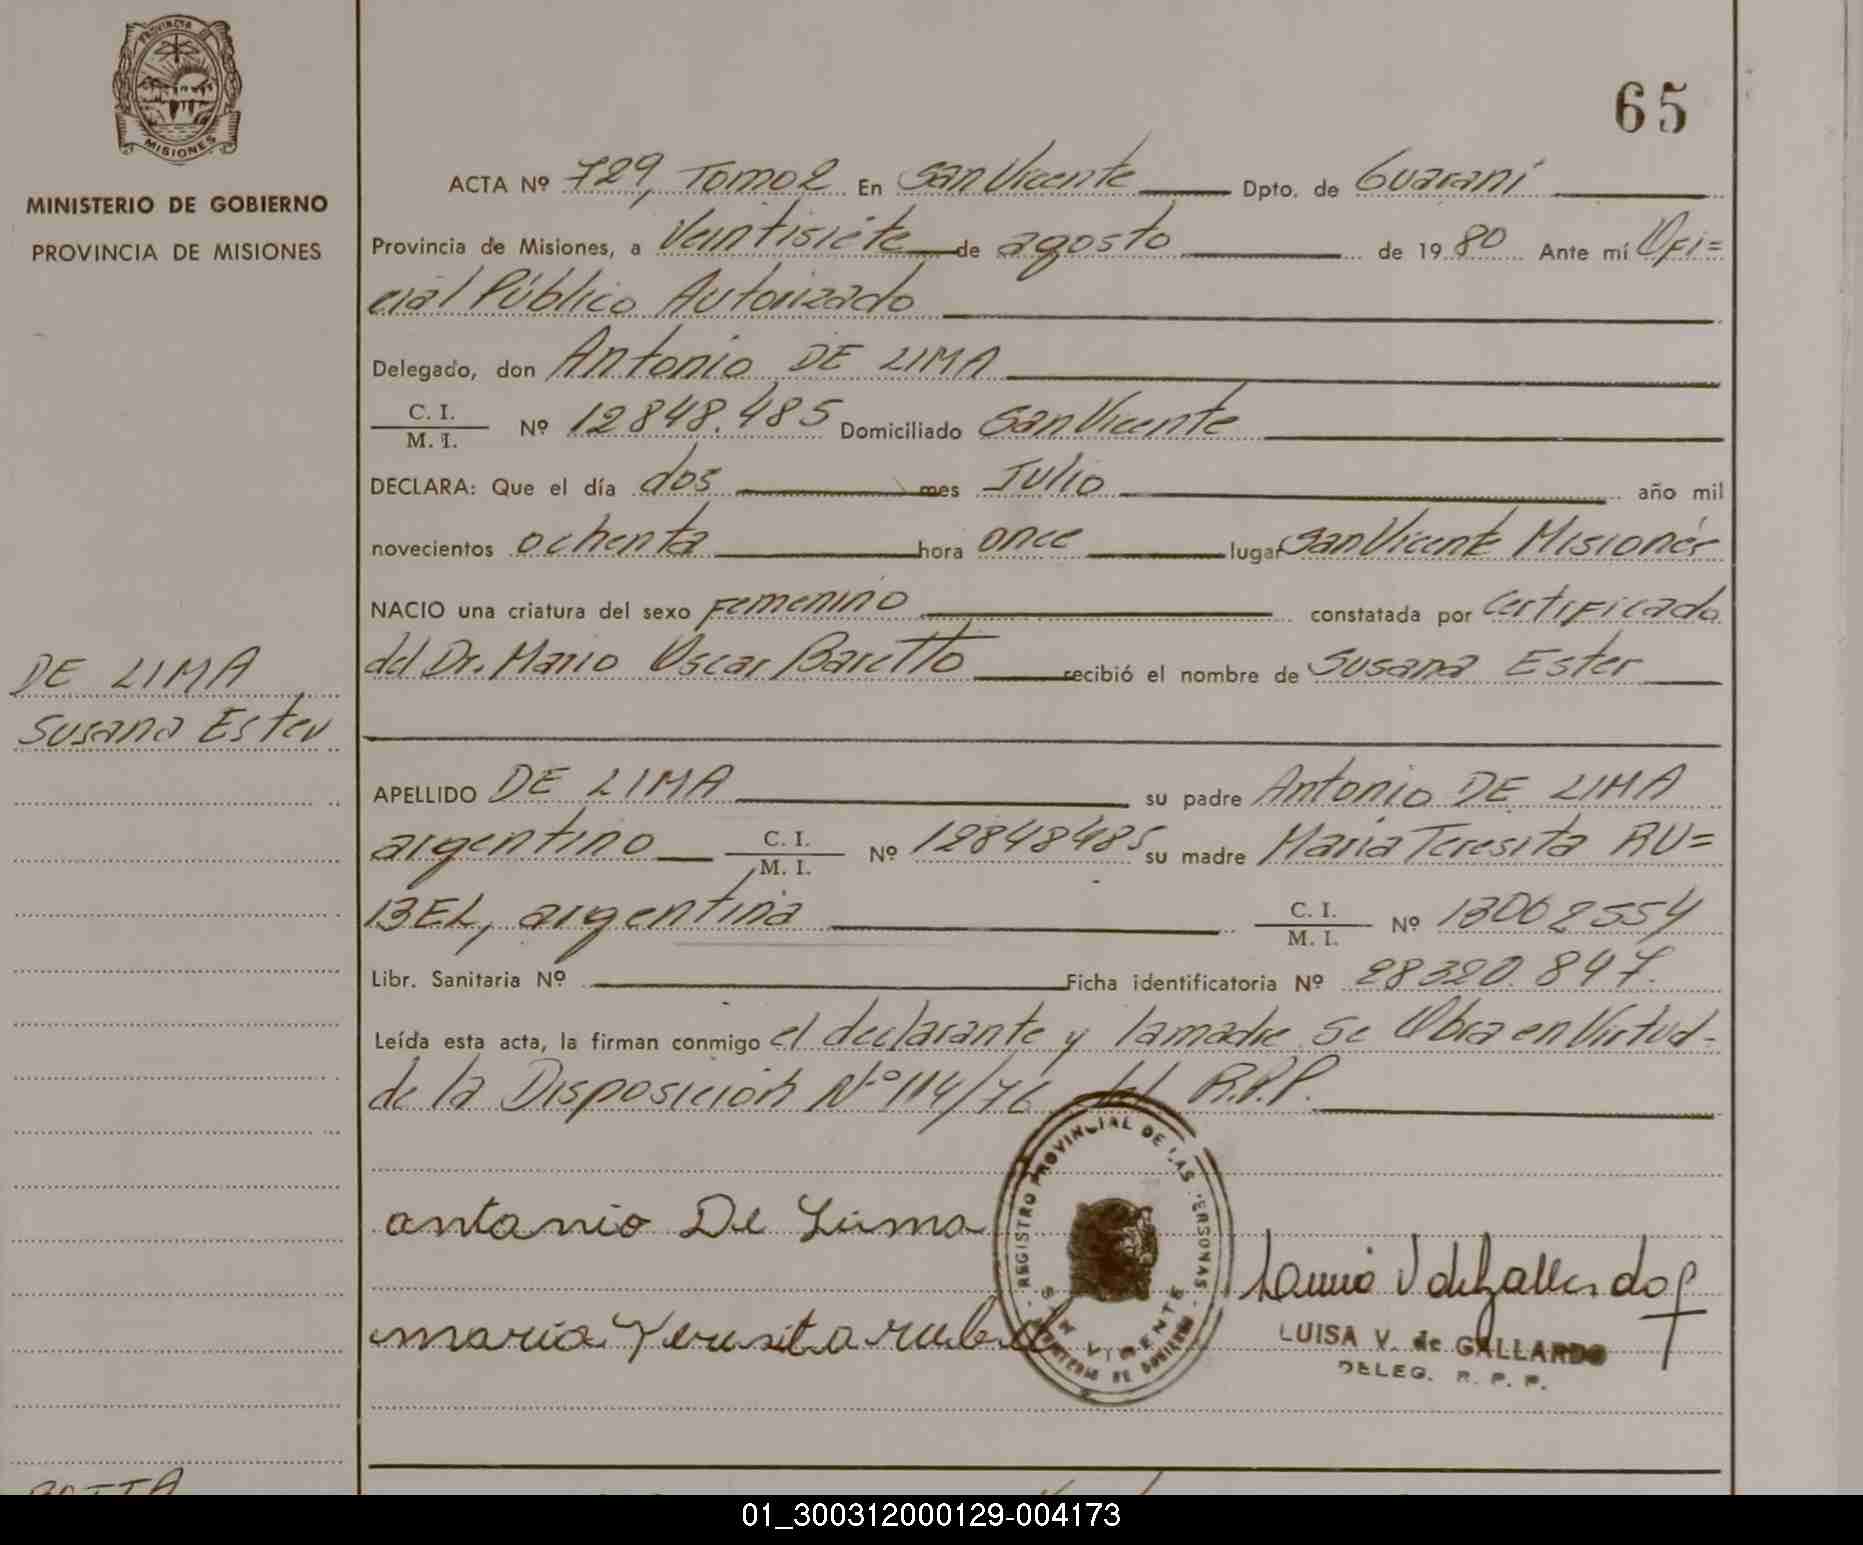 PROVINCIA
MISIONES
MINISTERIO DE GOBIERNO
PROVINCIA DE MISIONES
DE LIMA
Susana Ester
65
ACTA Nº 729, Tomo 2 En San Vicente Dpto. de Guaraní
Provincia de Misiones, a Veintisiete de agosto de 1980 Ante mí Ofi=
cial Público Autorizado
Delegado, don Antonio DE LIMA
C. I.
M. I. Nº 12848.485 Domiciliado San Vicente
DECLARA: Que el día dos mes Julio año mil
novecientos ochenta hora once lugar San Vicente Misiones
NACIO una criatura del sexo Femenino constatada por Certificado
del Dr. Mario Oscar Baretto recibió el nombre de Susana Ester
APELLIDO DE LIMA su padre Antonio DE LIMA
argentino C. I. M. I. Nº 12848485 su madre María Teresita RU=
BEL, argentina C. I. M. I. Nº 13062554
Libr. Sanitaria Nº Ficha identificatoria Nº 28320.847.
Leída esta acta, la firman conmigo el declarante y la madre Se Obra en Virtud-
de la Disposición Nº 114/76 del R.P.P.
REGISTRO PROVINCIAL DE LAS PERSONAS
SAN VICENTE
antonio De Lima
maria Teresita rubel
LUISA V. de GALLARDO
DELEG. R. P. P.
01_300312000129-004173